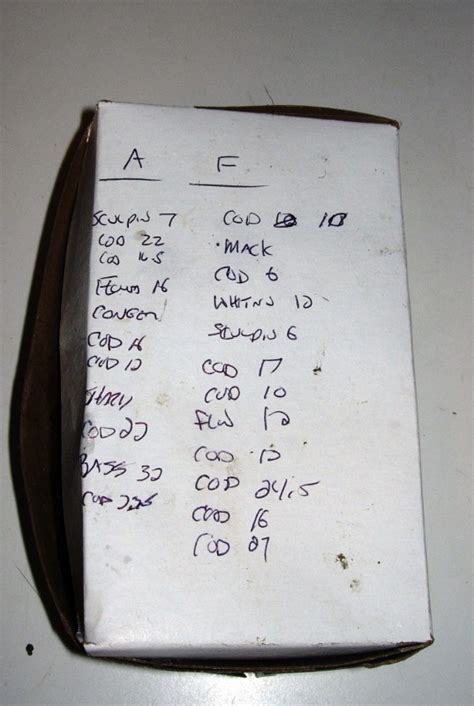 A F
SCULPIN 7
COD 22
COD 16.5
16
CONGER
COD 16
COD 12
COD 22
BASS 32
COD 23.5
COD 10
MACK
COD 6
WHITNG 12
SCULPIN 6
COD 17
COD 10
FLW 12
COD 12
COD 24.5
COD 16
COD 27